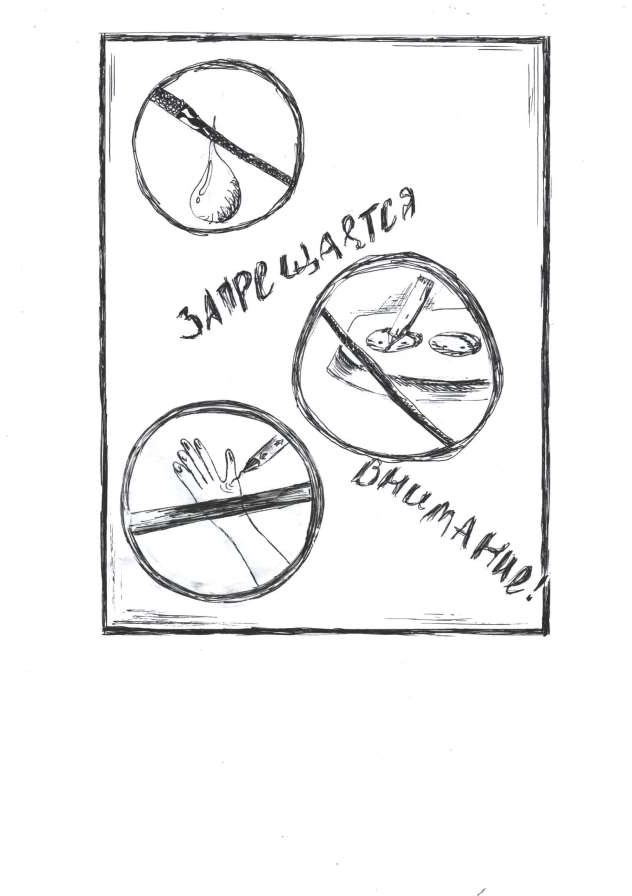 ЗАПРЕЩАЕТСЯ
ВНИМАНИЕ!